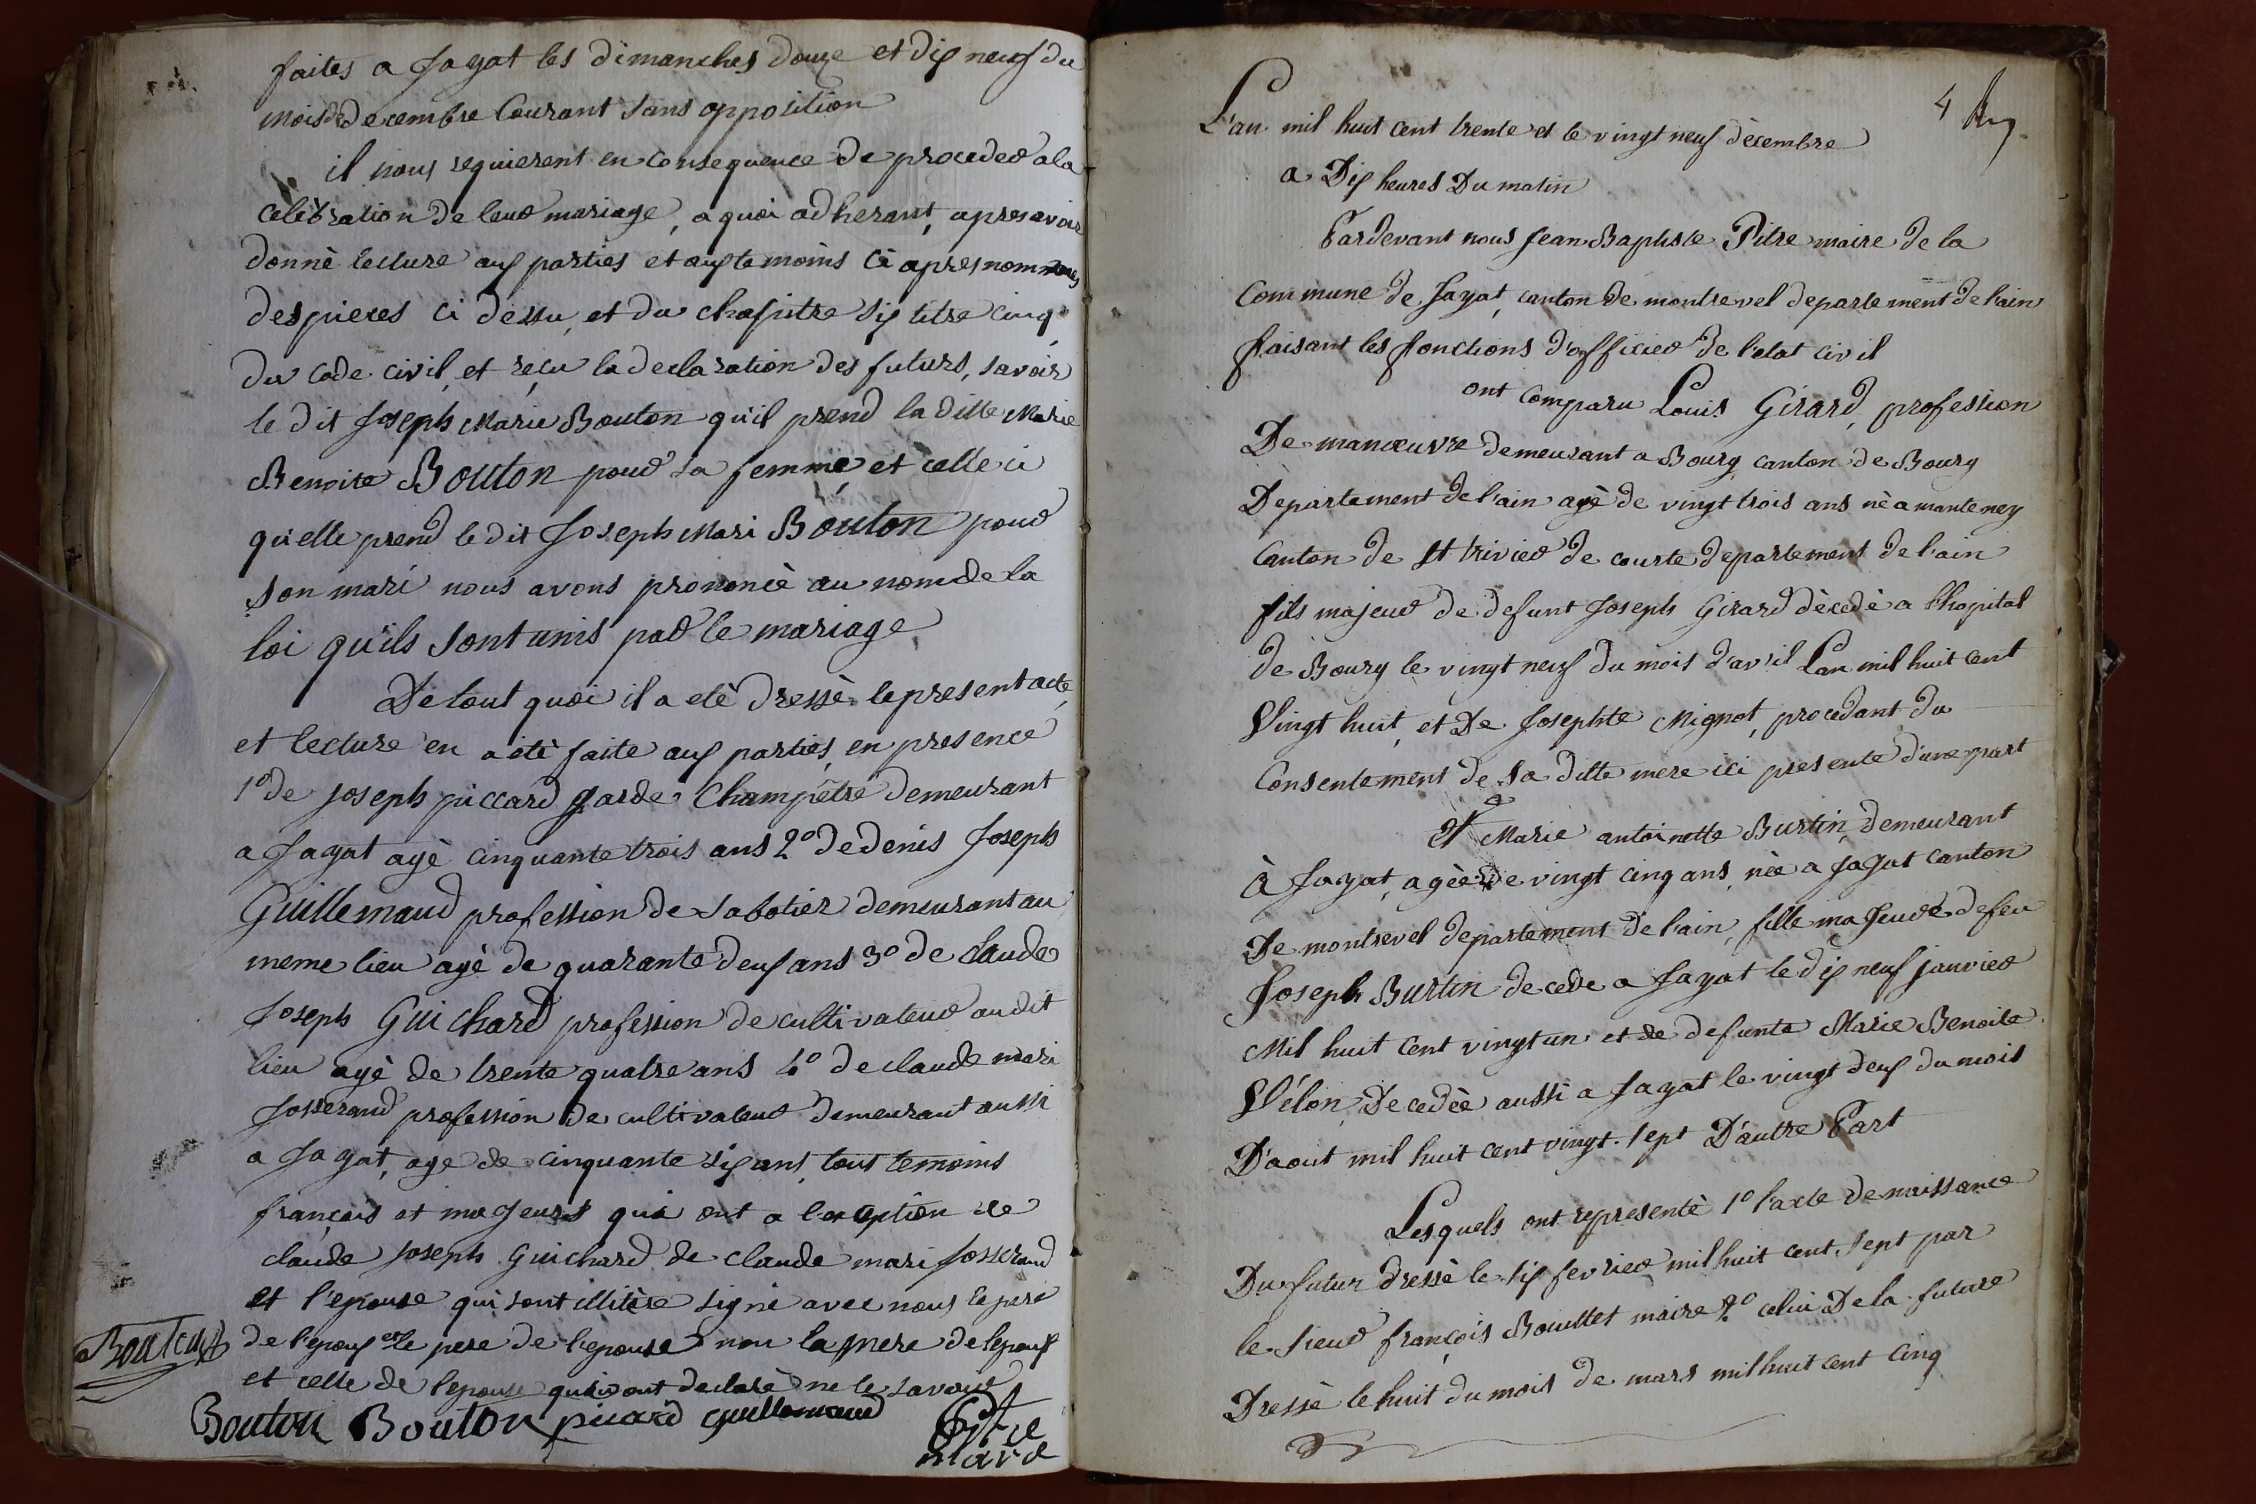 faites a Jayat les dimanches douze et dix neuf du
mois de decembre Courant sans opposition
il nous requierent en consequence de proceder a la
celèbration de leur mariage, a quoi adherant, apres avoir
donnè lecture aux parties et aux temoins ci apres nommes
des pieces ci dessu, et du chapitre six titre cinq
du code civil, et reçu la declaration des futurs, savoir
le dit Joseph Marie Bouton qu'il prend la ditte Marie
Benoite Bouton pour sa femme et celle ci
qu'elle prend le dit Joseph Mari Bouton pour
son mari nous avons prononcè au nom de la
loi qu'ils sont unis par le mariage
De tout quoi il a etè dressè le present acte,
et lecture en a étè faite aux parties, en presence
1º de joseph piccard garde Champêtre demeurant
a Jayat agè cinquante trois ans 2º de denis Joseph
Guillemaud profession de sabotier demeurant au
meme lieu agè de quarante deux ans 3º de Claude
Joseph Guichard profession de cultivateur au dit
lieu agè de trente quatre ans 4º de claude mari
Josserand profession de cultivateur demeurant aussi
a Jayat, age de cinquante six ans, tous temoins
français et majeurs qui ont a l'exception de
claude Joseph Guichard de claude mari Josserand
et l'epouse qui sont illitère signè avec nous le pere
de l'epoux et le pere de l'epouse non la mere de l'epoux
et celle de l'epouse qui ont declarè ne le savoir
Bouton
Bouton Bouton picard guillemaud Pitre
maire
4
L'an mil huit cent trente et le vingt neuf dècembre
a Dix heures Du matin
Pardevant nous Jean Baptiste Pitre maire de la
Commune de Jayat, canton de montrevel departement de l'ain
faisant les fonctions d'officier de l'etat civil
ont comparu Louis Girard, profession
De manœuvre demeurant a Bourg canton de Bourg
Departement de l'ain agè de vingt trois ans nè a manteney
Canton de st trivier de courte departement de l'ain
fils majeur de defunt Joseph Girard dècedè a l'hopital
de Bourg le vingt neuf du mois d'avril L'an mil huit cent
Vingt huit, et De Josephte Mignot, procedant du
Consentement de sa ditte mere ici presente d'une part
et Marie antoinette Burtin, demeurant
à Jayat, agèe de vingt cinq ans, nèe a Jayat canton
De montrevel departement de l'ain, fille majeure de feu
Joseph Burtin decede a Jayat le dix neuf janvier
Mil huit Cent vingt un et de defunte Marie Benoite
Vélon, De cedèe aussi a Jayat le vingt deux du mois
D'aout mil huit cent vingt sept D'autre Part
Lesquels ont representè 1º l'acte de naissance
Du futur dressè le six fevrier mil huit cent sept par
le sieur françois Bouillet maire 2º celui De la future
Dressè le huit du mois de mars mil huit cent cinq